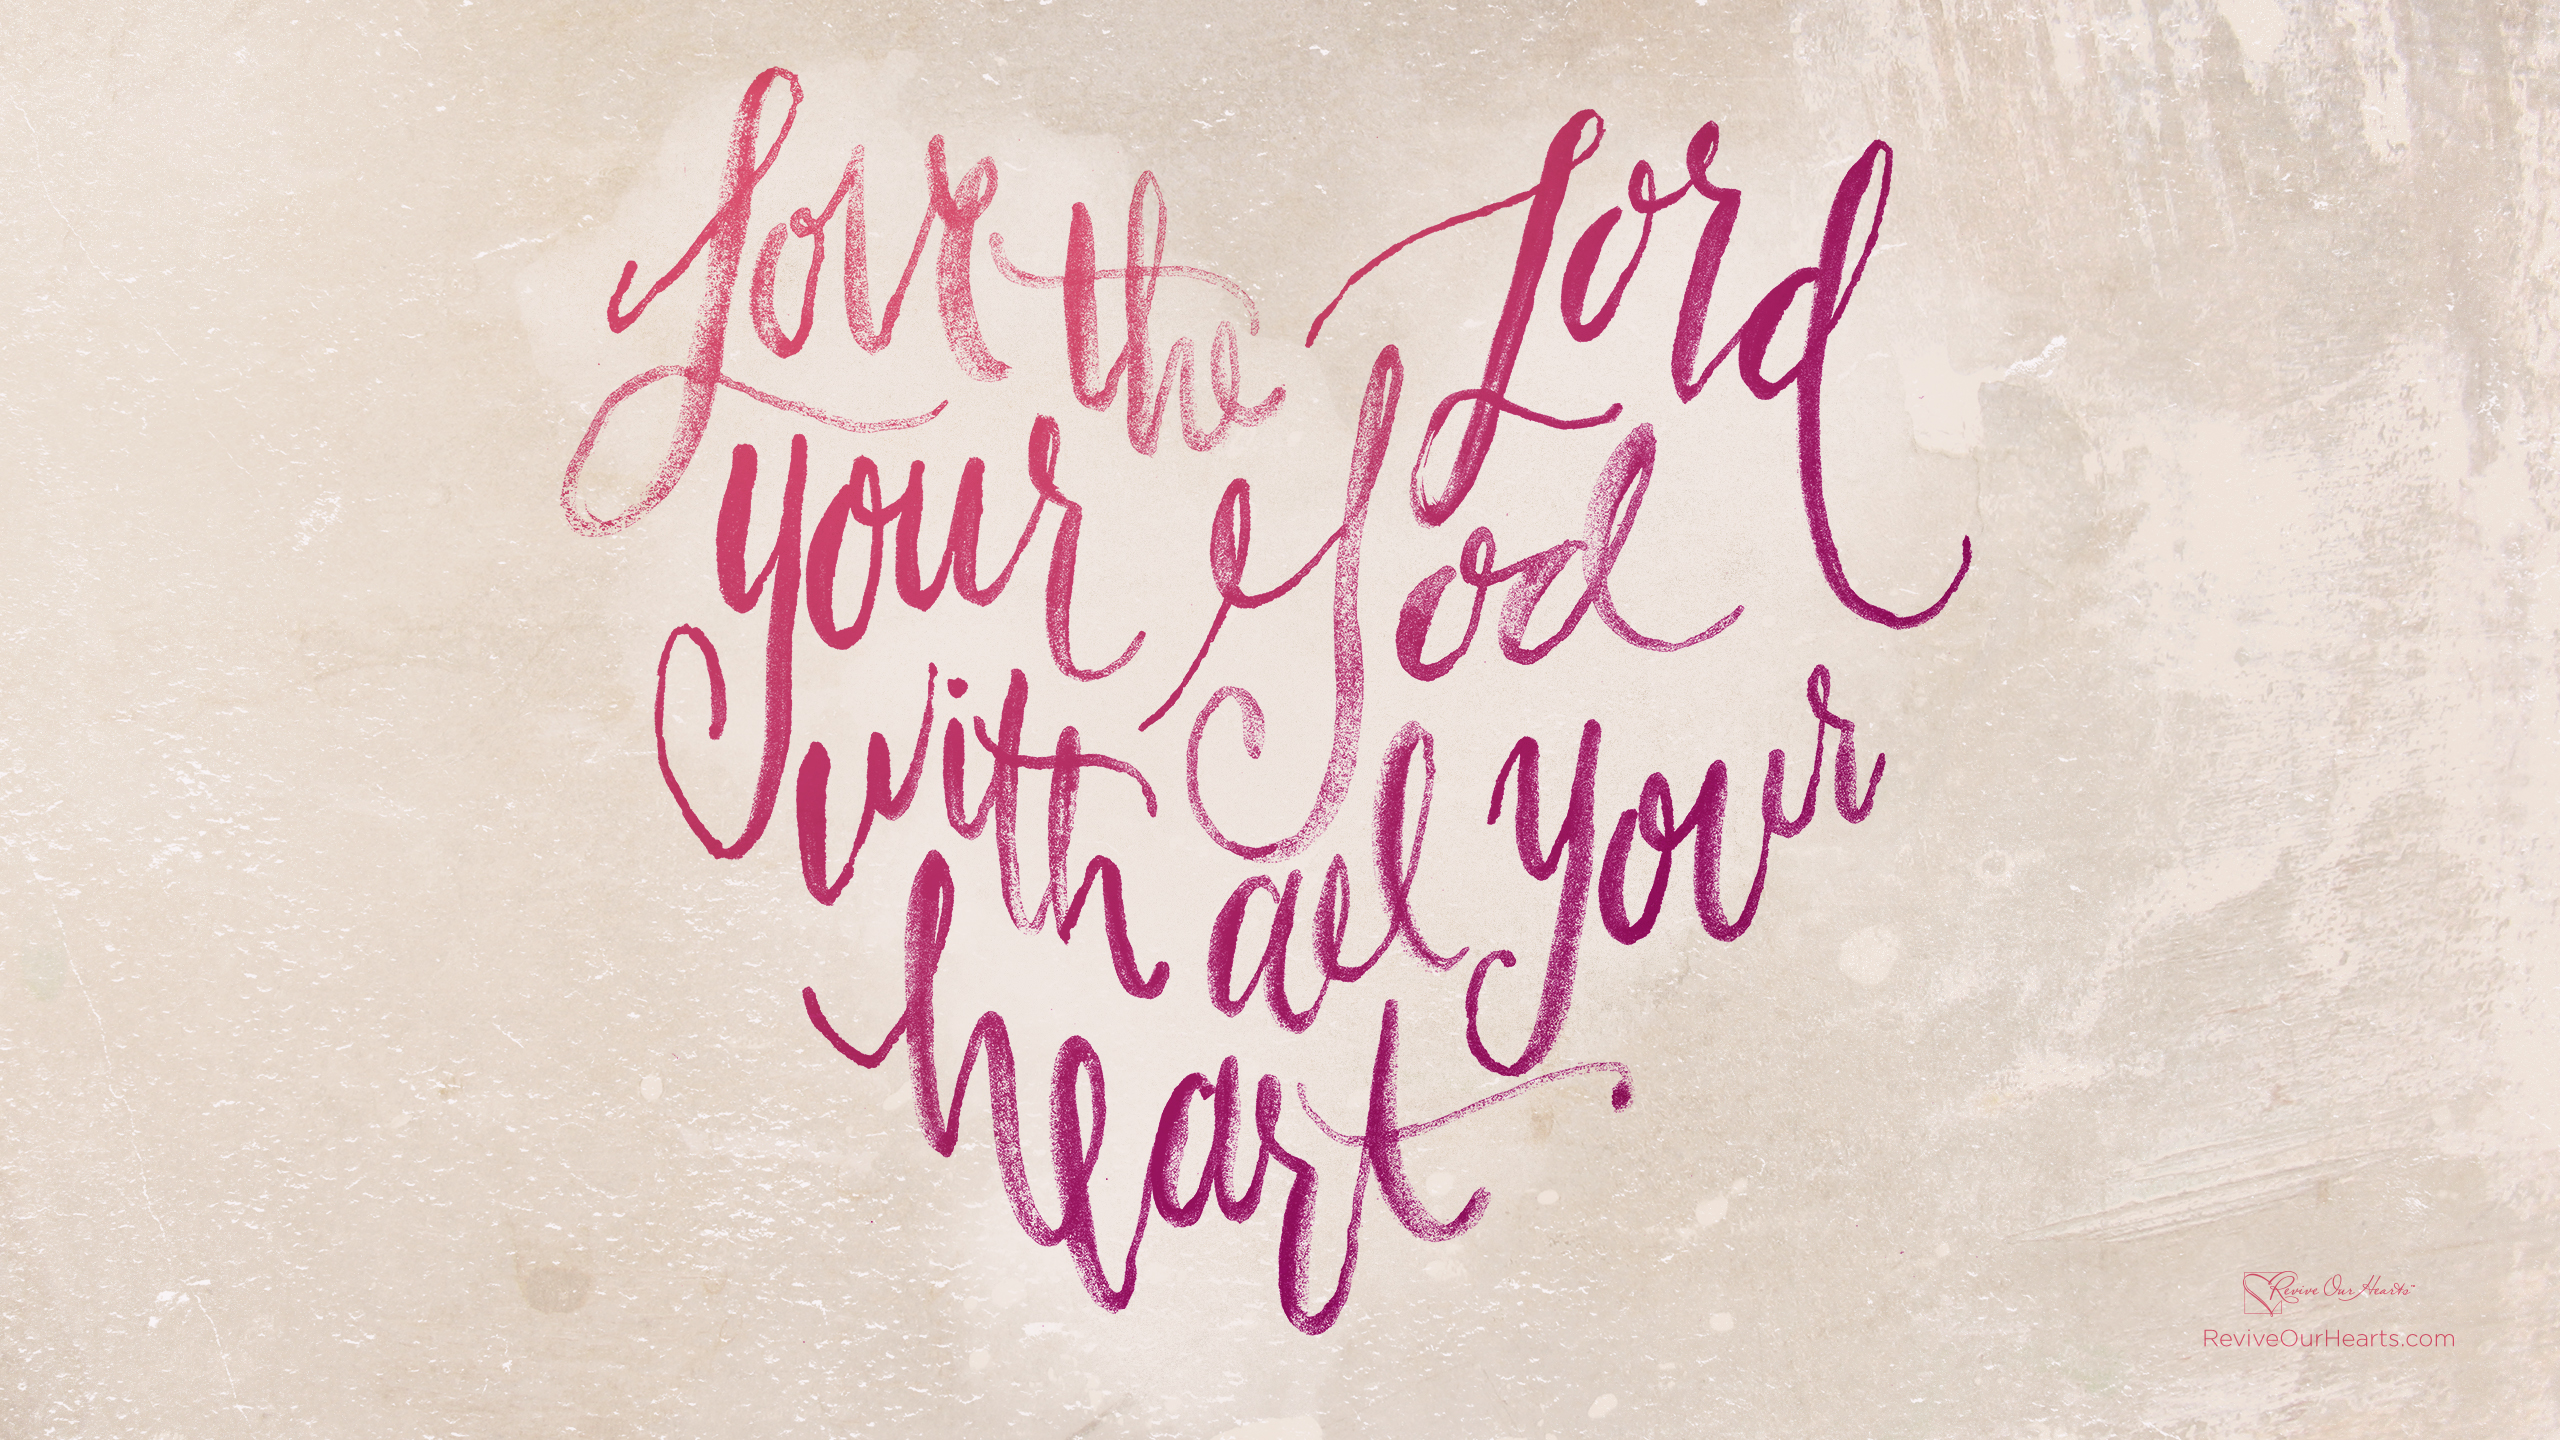 Love the Lord
your God
with all your
heart
Revive Our Hearts™
ReviveOurHearts.com